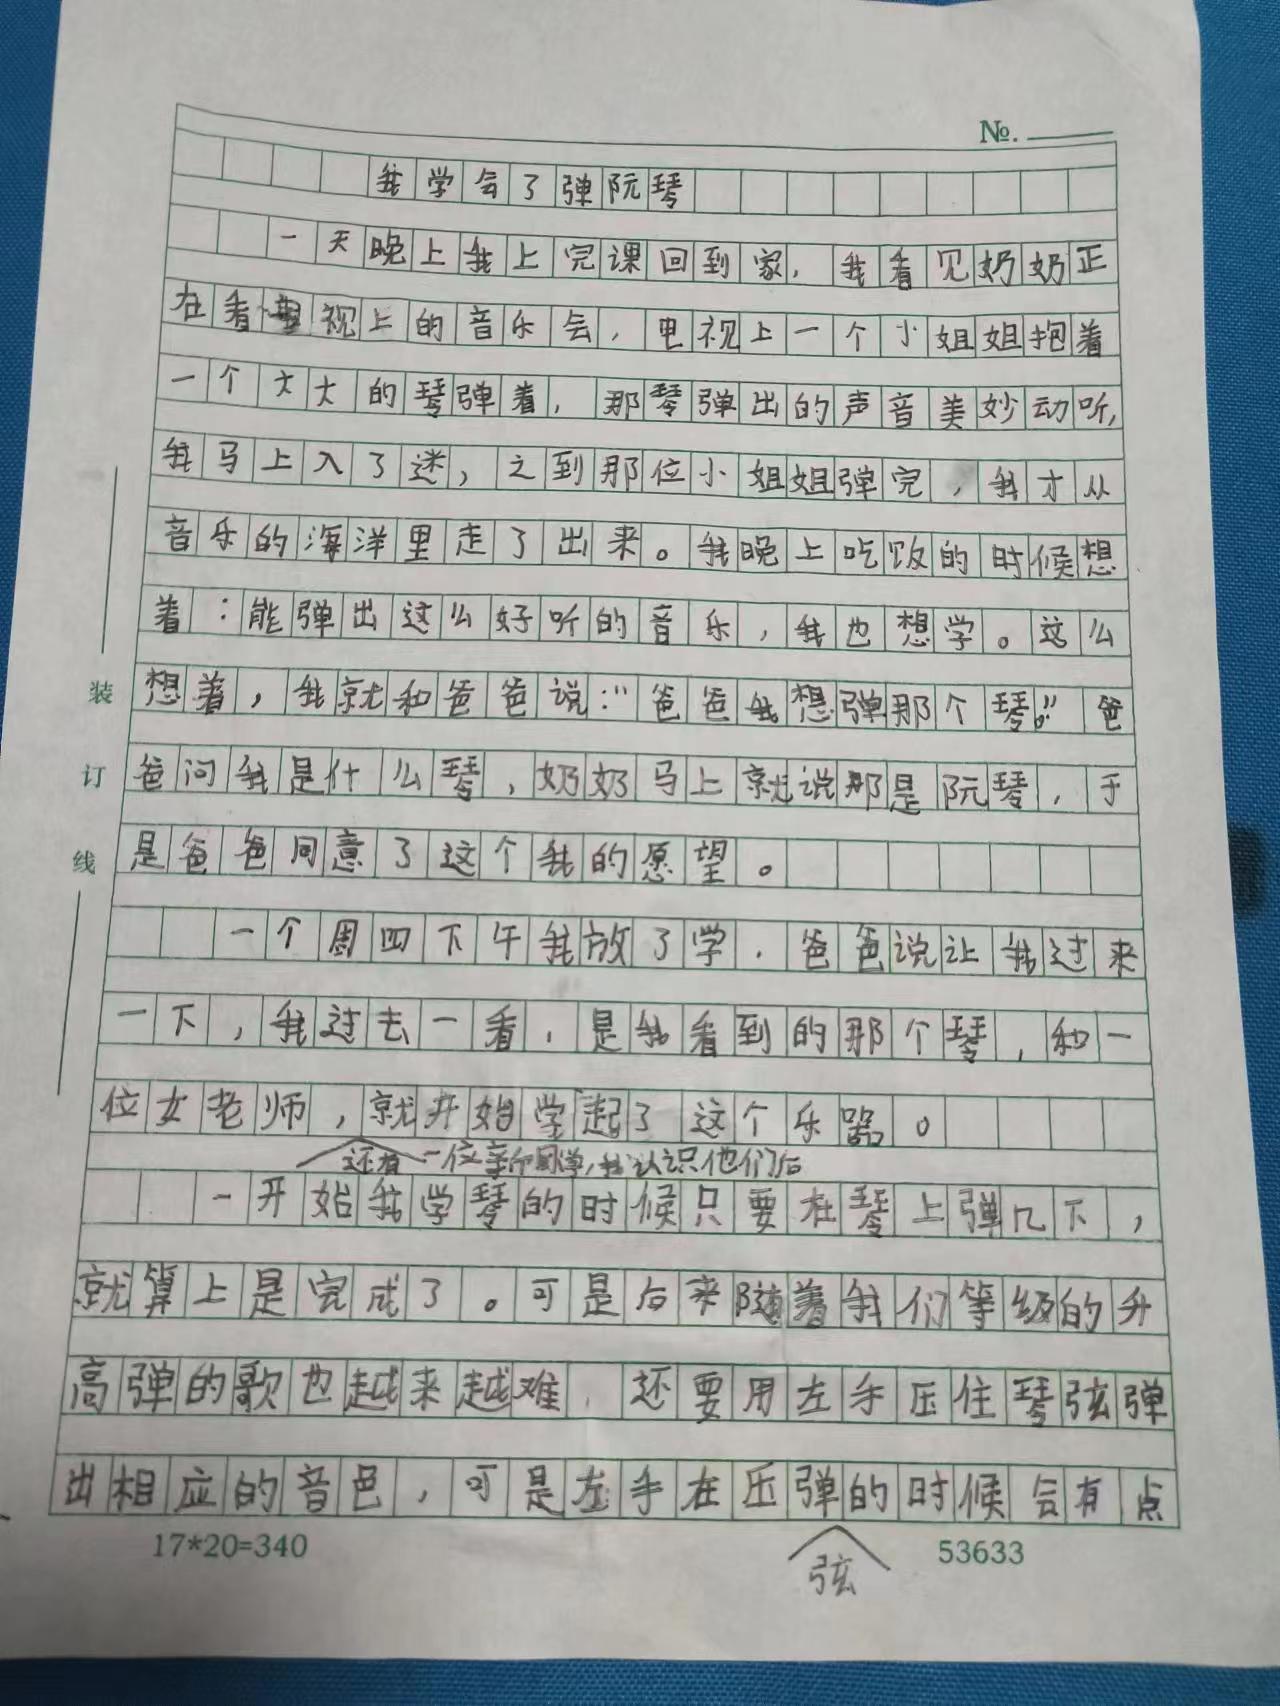 №.
我学会了弹阮琴
一天晚上我上完课回到家，我看见奶奶正
在看电视上的音乐会，电视上一个小姐姐抱着
一个大大的琴弹着，那琴弹出的声音美妙动听，
我马上入了迷，之到那位小姐姐弹完，我才从
音乐的海洋里走了出来。我晚上吃饭的时候想
着：能弹出这么好听的音乐，我也想学。这么
想着，我就和爸爸说：“爸爸我想弹那个琴。”爸
爸问我是什么琴，奶奶马上就说那是阮琴，于
是爸爸同意了这个我的愿望。
一个周四下午我放了学，爸爸说让我过来
一下，我过去一看，是我看到的那个琴，和一
位女老师，就开始学起了这个乐器。
还有一位新同学，我认识他们后
一开始我学琴的时候只要在琴上弹几下，
就算上是完成了。可是后来随着我们等级的升
高弹的歌也越来越难，还要用左手压住琴弦弹
出相应的音色，可是左手在压弹的时候会有点
弦
17*20=340
53633
装
订
线